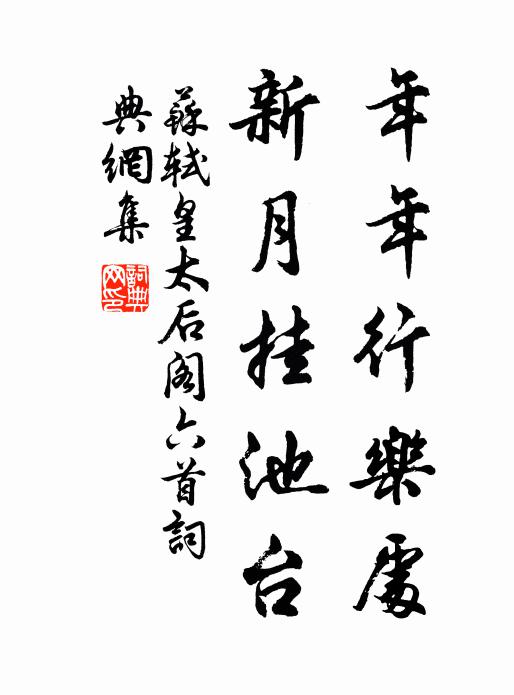 年年行樂處
新月挂池台
蘇軾皇太后阁六首詞
典網集
詞典
网印